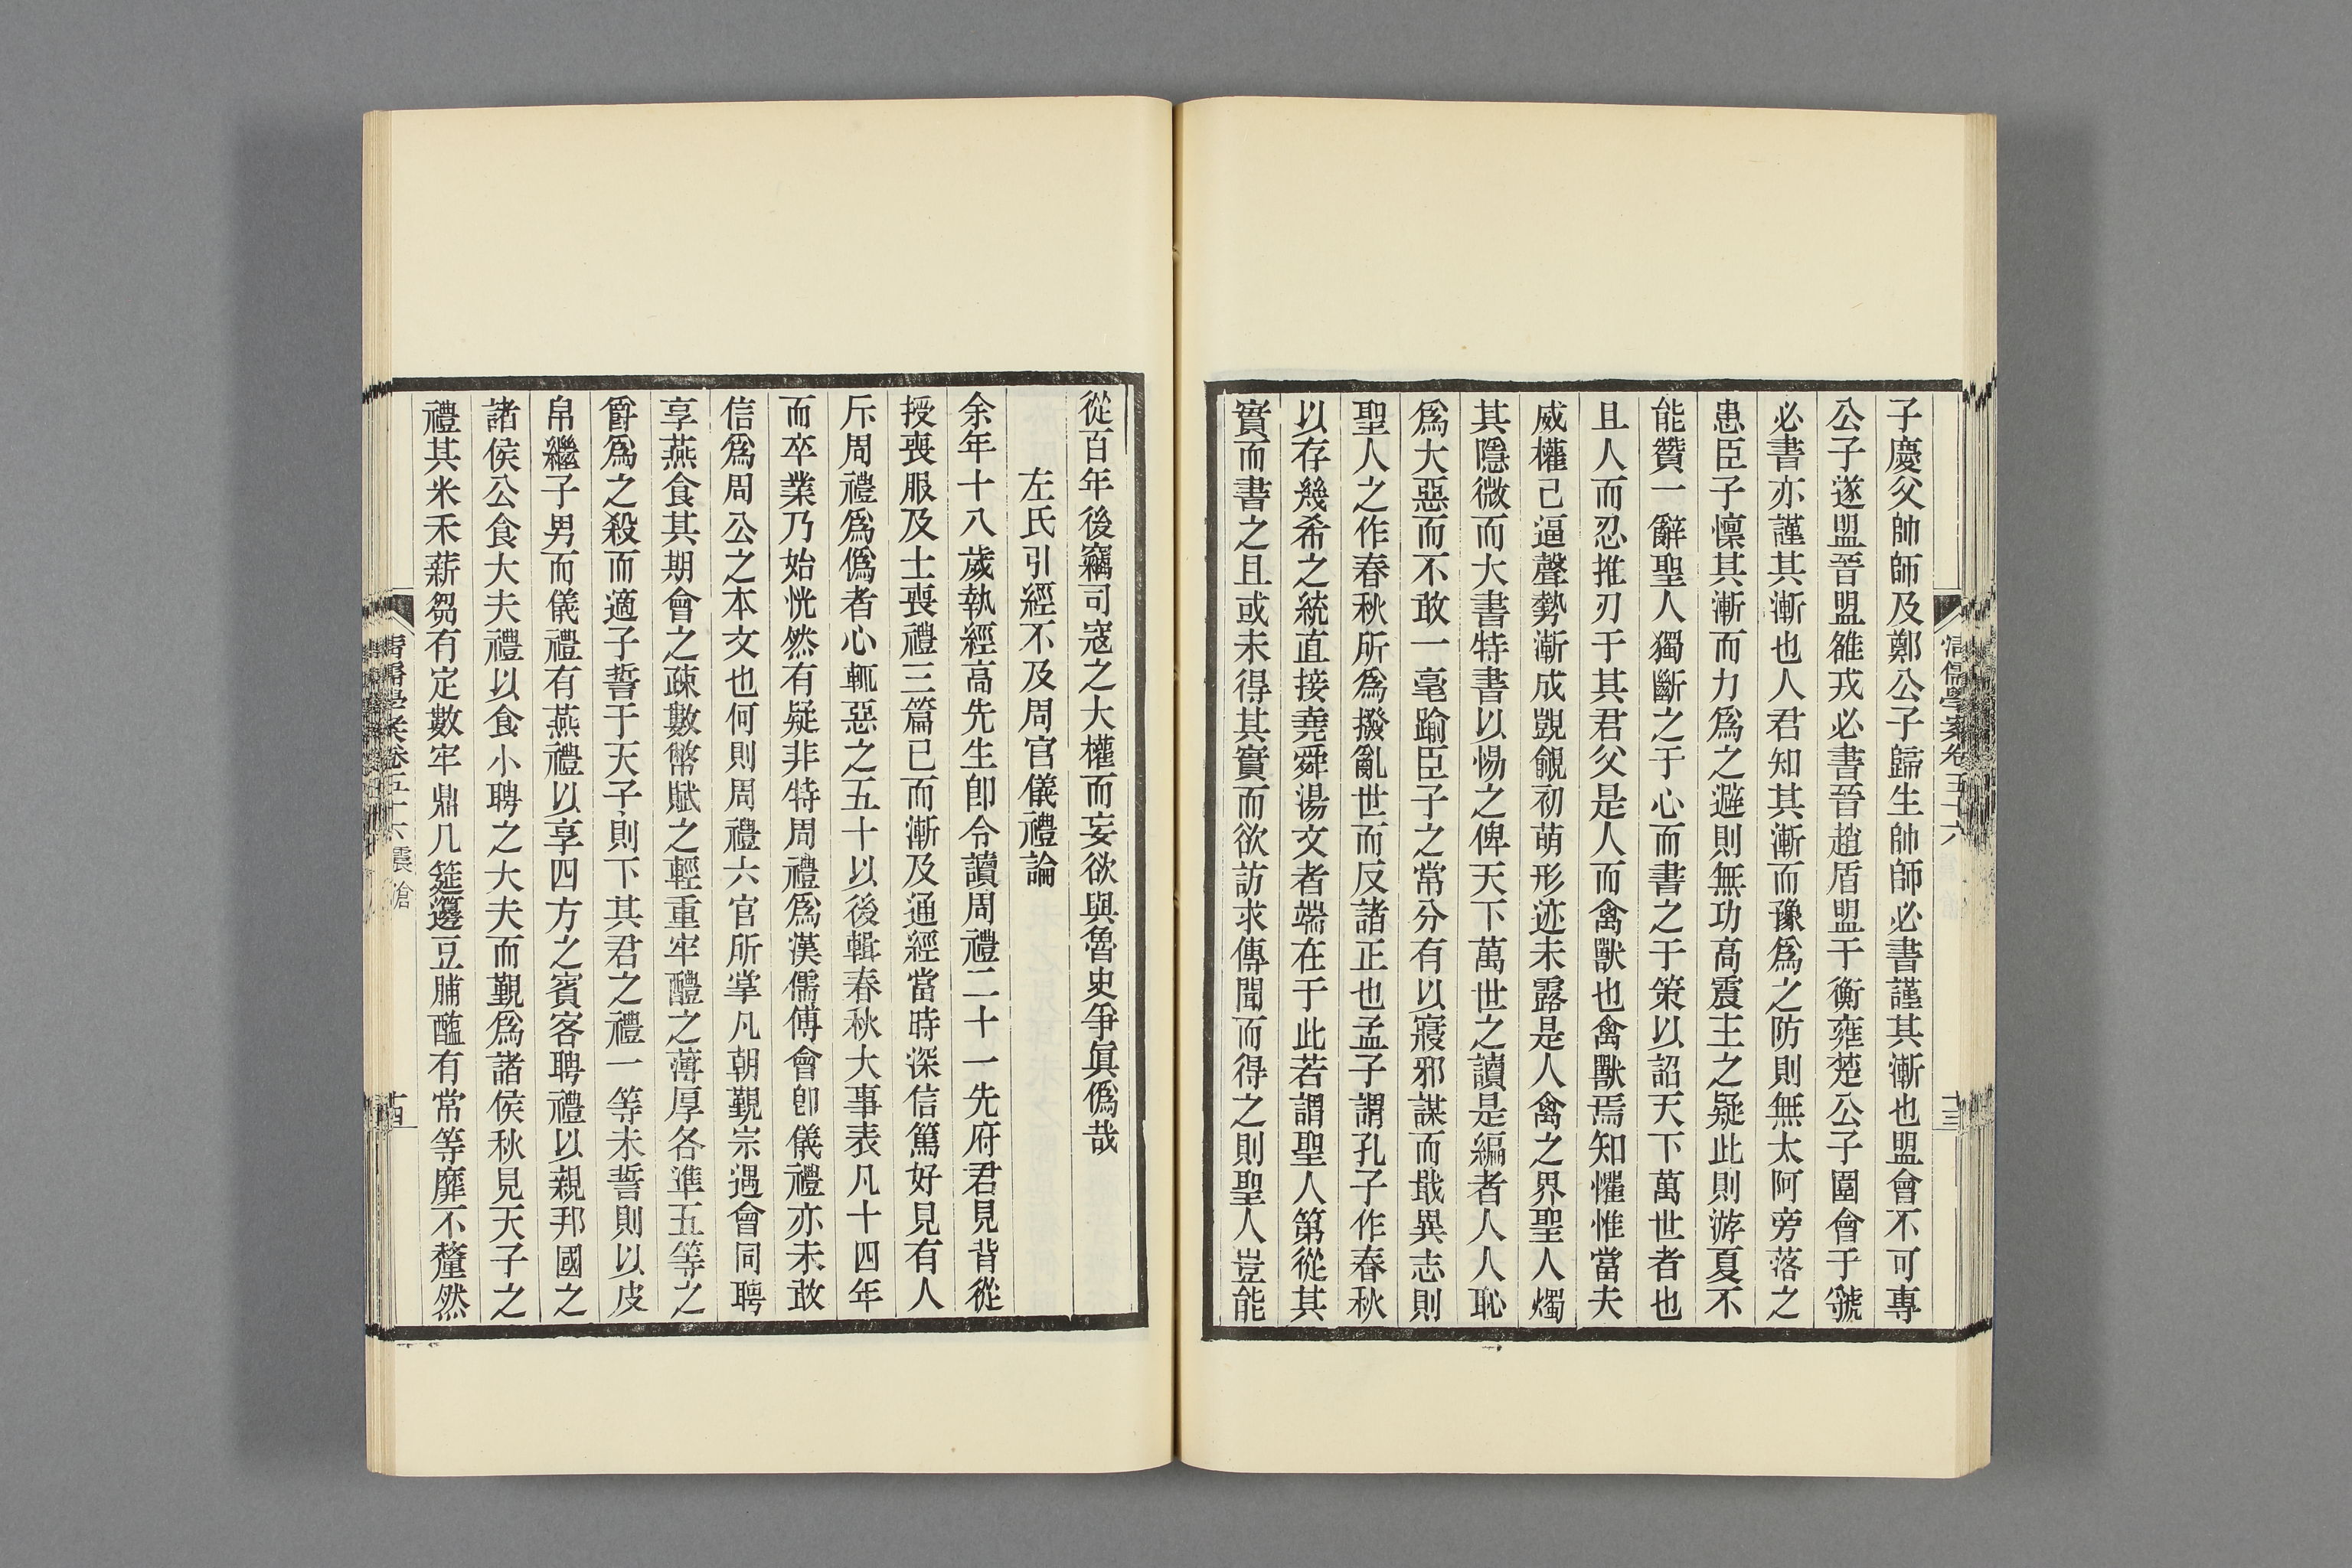 清儒學案卷五十六
十三
子慶父帥師及鄭公子歸生帥師必書謹其漸也盟會不可專
公子遂盟晉盟雒戎必書晉趙盾盟于衡雍楚公子圍會于虢
必書亦謹其漸也人君知其漸而豫爲之防則無太阿旁落之
患臣子懍其漸而力爲之避則無功高震主之疑此則游夏不
能贊一辭聖人獨斷之于心而書之于策以詔天下萬世者也
且人而忍推刃于其君父是人而禽獸也禽獸焉知懼惟當夫
威權已逼聲勢漸成覬覦初萌形迹未露是人禽之界聖人燭
其隱微而大書特書以惕之俾天下萬世之讀是編者人人恥
爲大惡而不敢一毫踰臣子之常分有以寢邪謀而戢異志則
聖人之作春秋所爲撥亂世而反諸正也孟子謂孔子作春秋
以存幾希之統直接堯舜湯文者端在于此若謂聖人第從其
實而書之且或未得其實而欲訪求傳聞而得之則聖人豈能
從百年後竊司寇之大權而妄欲與魯史爭眞僞哉
左氏引經不及周官儀禮論
余年十八歲執經高先生卽令讀周禮二十一先府君見背從
授喪服及士喪禮三篇已而漸及通經當時深信篤好見有人
斥周禮爲僞者心輒惡之五十以後輯春秋大事表凡十四年
而卒業乃始恍然有疑非特周禮爲漢儒傅會卽儀禮亦未敢
信爲周公之本文也何則周禮六官所掌凡朝覲宗遇會同聘
享燕食其期會之疎數幣賦之輕重牢醴之薄厚各準五等之
爵爲之殺而適子誓于天子則下其君之禮一等未誓則以皮
帛繼子男而儀禮有燕禮以享四方之賓客聘禮以親邦國之
諸侯公食大夫禮以食小聘之大夫而覲爲諸侯秋見天子之
禮其米禾薪芻有定數牢鼎几筵籩豆脯醢有常等靡不釐然
清儒學案卷五十六 震滄
十四